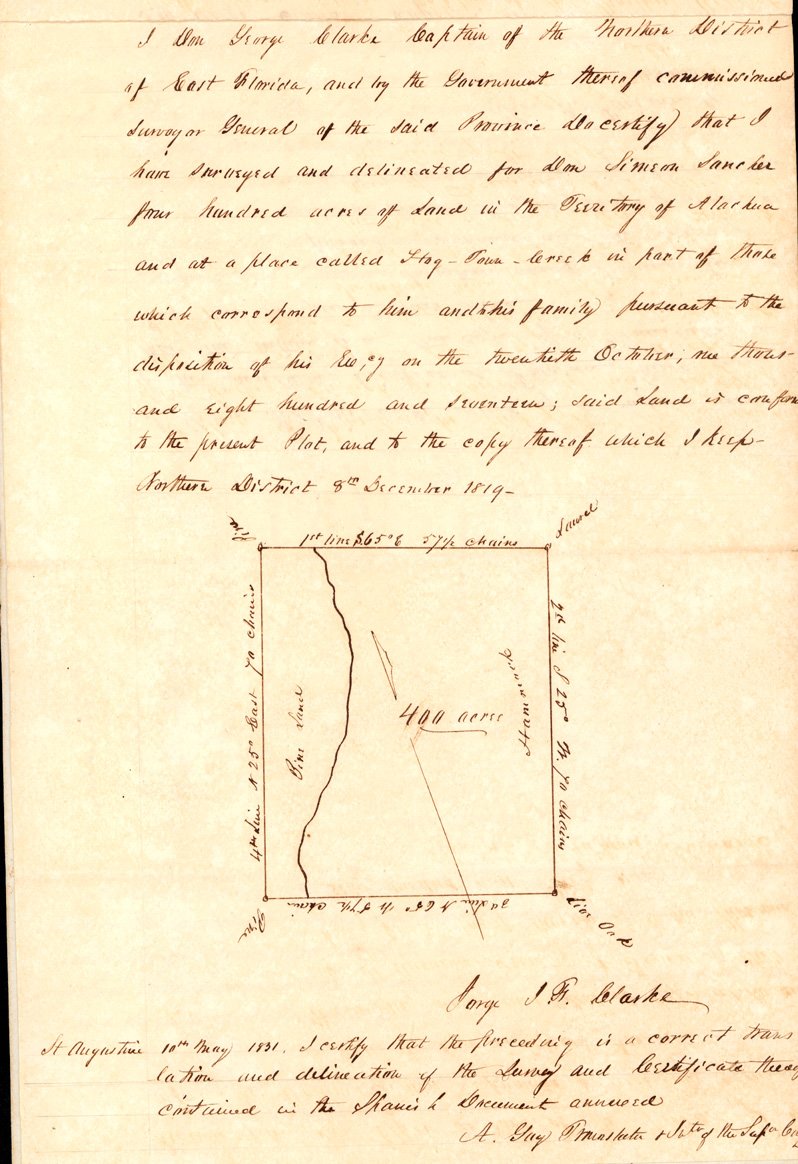 I Don George Clarke Captain of the Northern District
of East Florida, and by the Government thereof commissioned
Surveyor General of the said Province Do certify that I
have surveyed and delineated for Don Simeon Sanchez
four hundred acres of Land in the Territory of Alachua
and at a place called Hog-Town-Creek in part of those
which correspond to him and to his family pursuant to the
disposition of his Ex,cy on the twentieth October, one thous-
and eight hundred and seventeen; said Land is conform
to the present Plot, and to the copy thereof which I keep-
Northern District 8th December 1819-
Pine
1st line S.65° E 57½ chains
Laurel
4th Line N 25° East 70 chains
Pine Land
400 acres
Hammock
2d line S 25° W. 70 chains
Pine
3d Line N 65° W 57½ chains
Live Oak
Jorge J. F. Clarke
St Augustine 10th May 1831. I certify that the preceeding is a correct trans
lation and delineation of the Survey and Certificate thereof
contained in the Spanish Document annexed
A. Gay Translator & Intr of the Supr